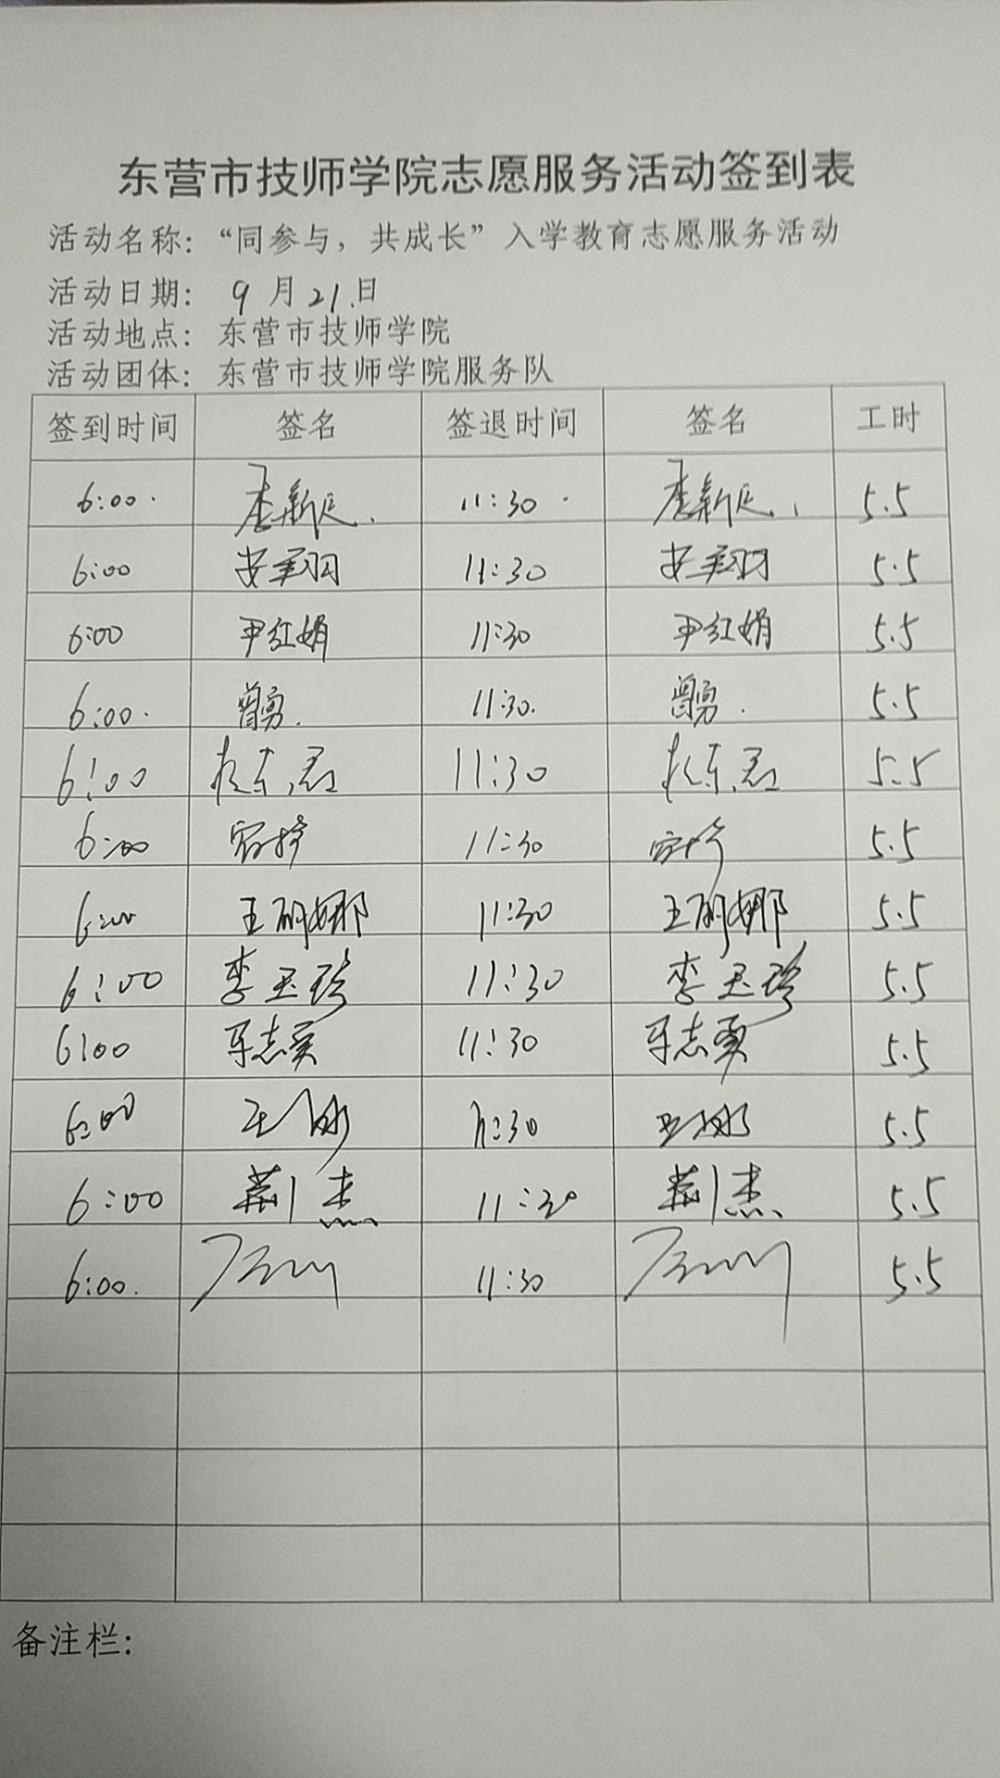 东营市技师学院志愿服务活动签到表
活动名称：“同参与，共成长”入学教育志愿服务活动
活动日期： 9 月 21 日
活动地点： 东营市技师学院
活动团体： 东营市技师学院服务队
签到时间 签名 签退时间 签名 工时
6:00 李新民 11:30 李新民 5.5
6:00 安翔羽 11:30 安翔羽 5.5
6:00 尹红娟 11:30 尹红娟 5.5
6:00 曾勇 11:30 曾勇 5.5
6:00 11:30 5.5
6:00 11:30 5.5
6:00 王丽娜 11:30 王丽娜 5.5
6:00 李玉珍 11:30 李玉珍 5.5
6:00 11:30 5.5
6:00 11:30 5.5
6:00 荆杰 11:30 荆杰 5.5
6:00 11:30 5.5
备注栏：